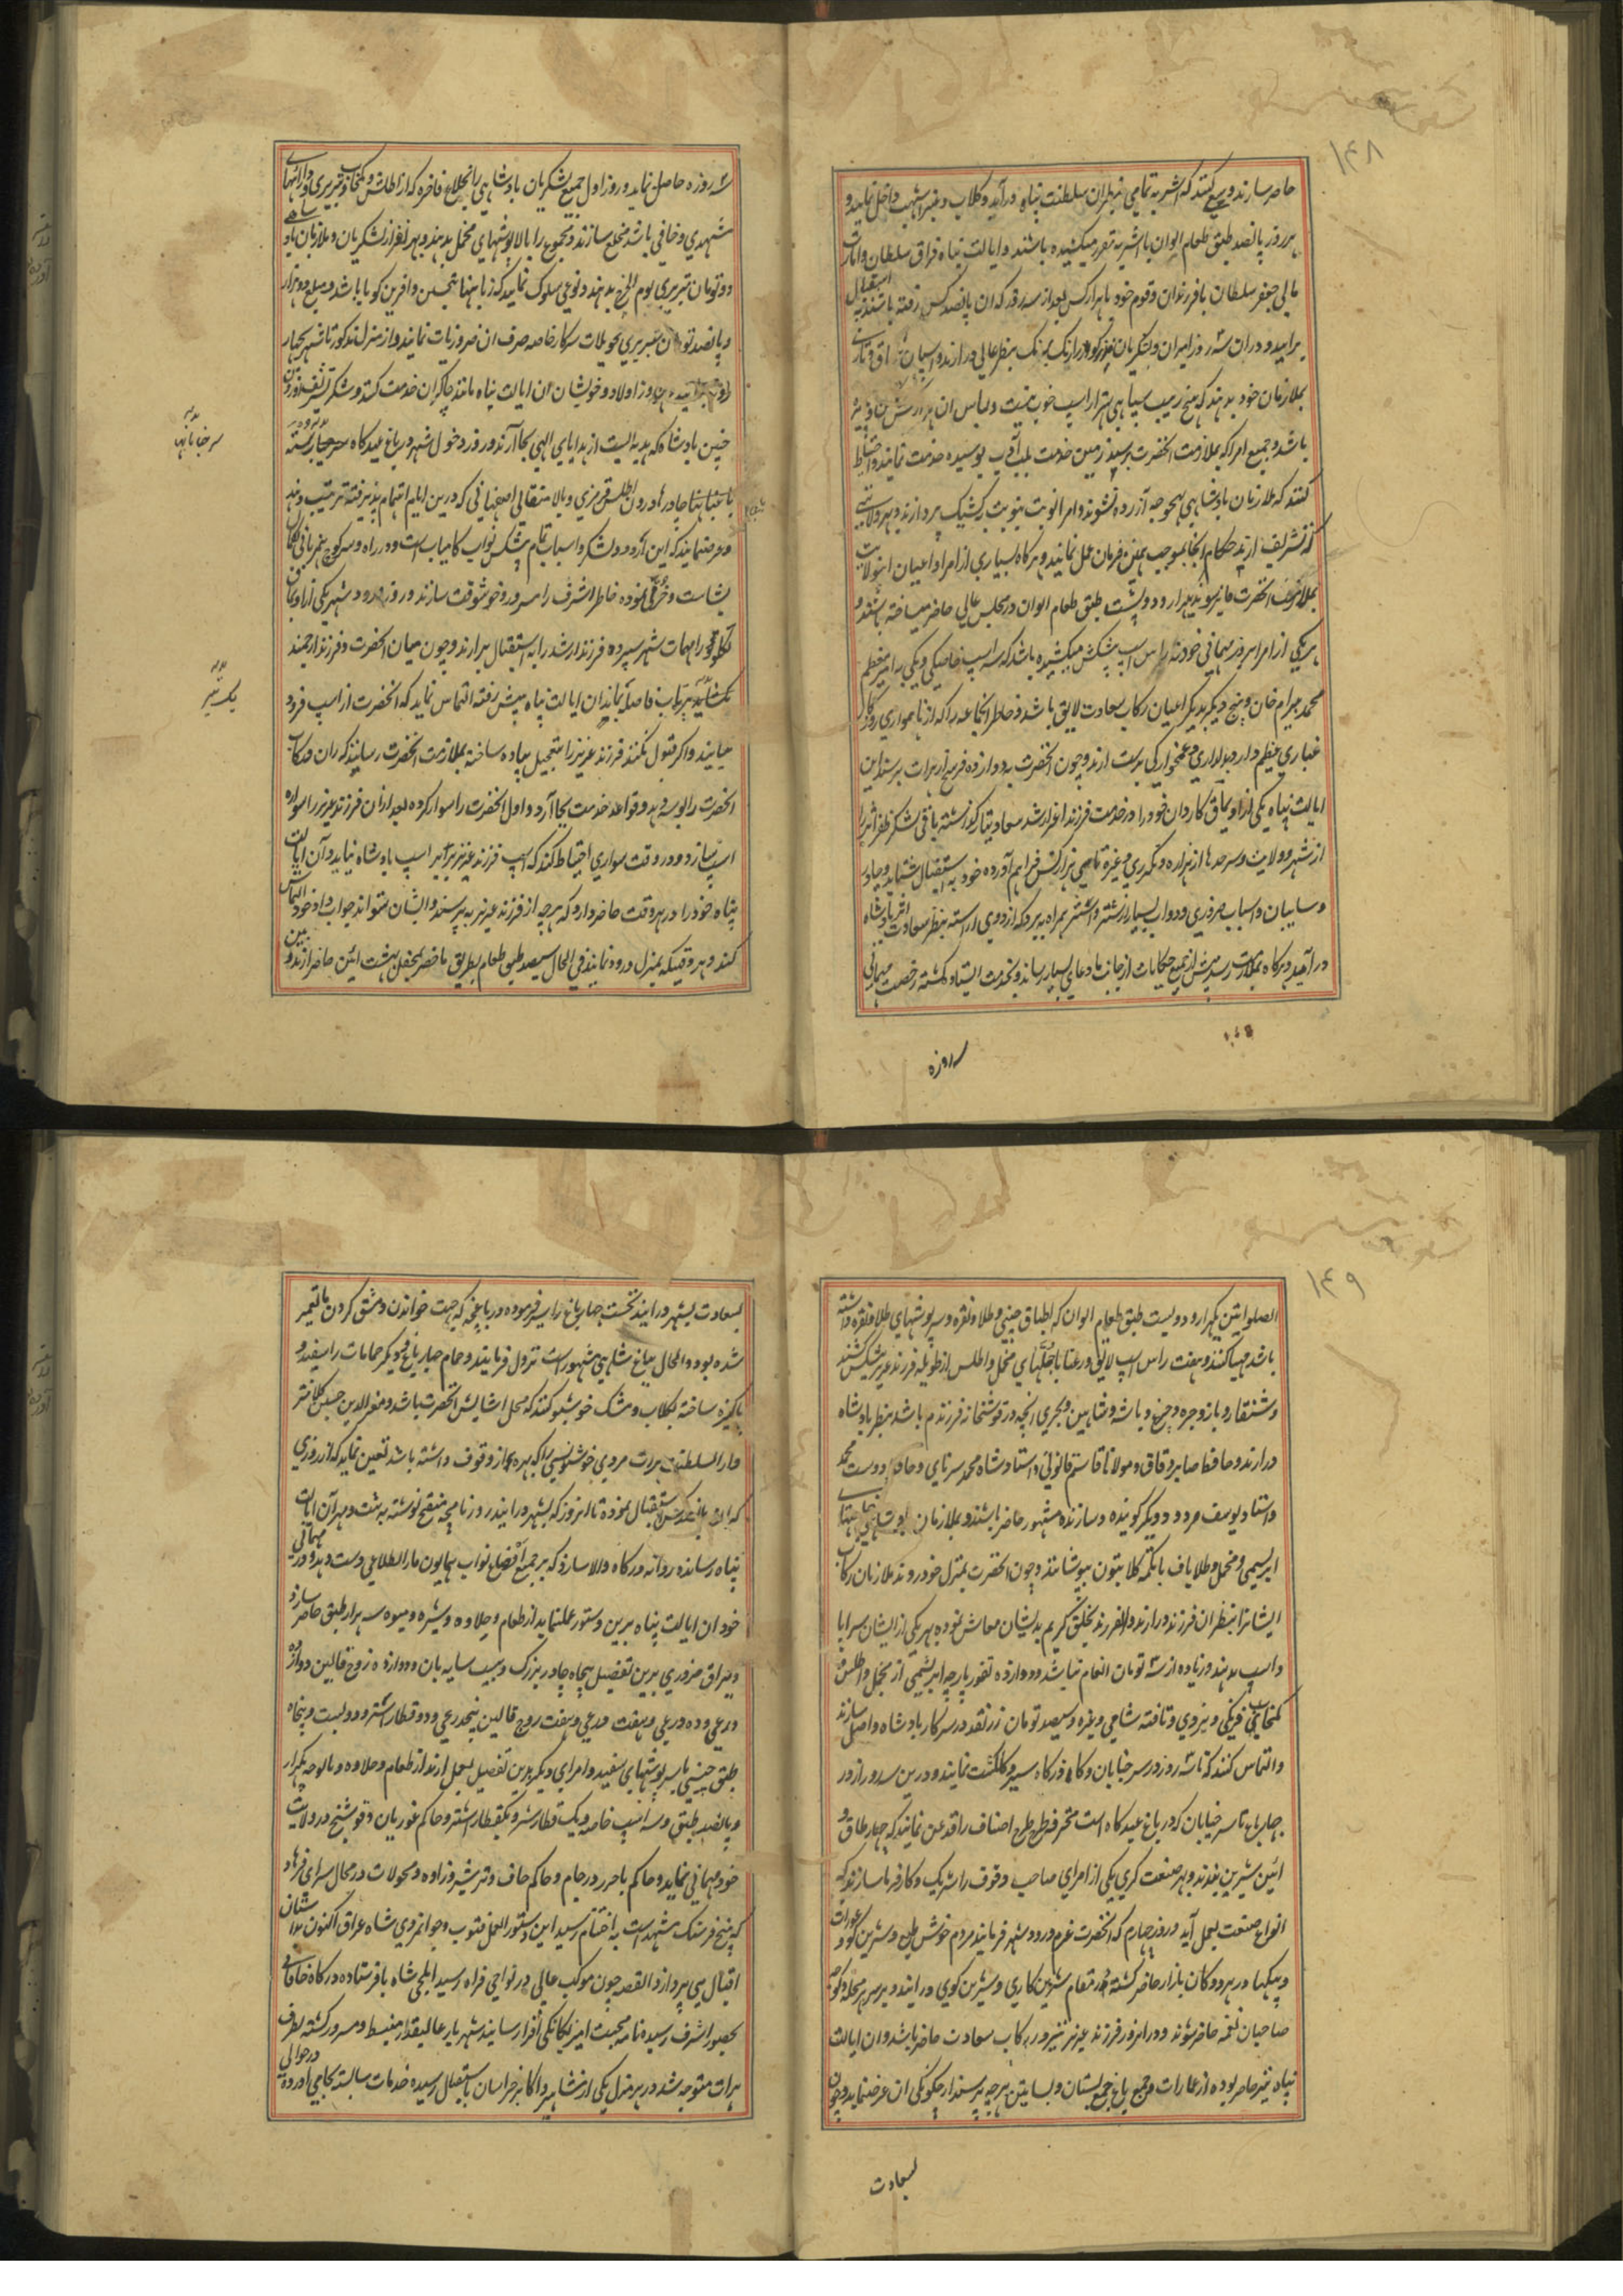 ۱۴۸
حاضر سازند و سعی کنند که اشربه تمامی بنظر ان سلطنت پناه درآید و کلاب و عنبر اشهب داخل نمایند و
هر روز پانصد طبق طعام الوان با اشربه مقرر میکشیده باشند و ایالت پناه قزاق سلطان و امارت
مآلی جعفر سلطان با فرزندان و قوم خود با هزار کس بعد از سه روز که ان پانصد کس رفته باشند به استقبال
برایید و دران سه روز امیران و لشکریان مذکور را رنگ برنگ بنظر عالی درارند و اسپان
بملازمان خود بدهند که هیچ زیب سپاهی بهتر از اسپ خوب نیست و لباس ان هزار کس
باشد و جمیع امرا که بملازمت انحضرت برسند زمین خدمت بلب ادب بوسیده خدمت نمایند و احتیاط
کنند که ملازمان بادشاهی بهیچ وجه آزرده نشوند و امرا نوبت بنوبت بکشیک پردازند و بهر ولایتی
که تشریف ارند حکام انجا بموجب همین فرمان عمل نمایند و هرگاه بسیاری از امرا و اعیان انولایت
بملازمت انحضرت فایز شوند هزار و دویست طبق طعام الوان در مجلس عالی حاضر میساخته باشند و
هریکی از امرا بروز مهمانی خود سه راس اسپ پیشکش میکشیده باشد که سه اسپ خاصکی و یکی به امیر معظم
محمد بیرام خان و پنج دیگر بدیگر اعیان رکاب سعادت لایق باشد و خاطر انجماعه را که از ناهمواری روزگار
غباری عظیم دارد بدلداری و غمخوارکی بدست ارند و چون انحضرت به دوازده فرسخ از هرات برسند این
ایالت پناه یکی از اویماق کاردان خود را در خدمت فرزند اعز ارشد سعادتیار گذاشته باقی لشکر ظفر اثر را
از شهر و ولایت و سرحدها از هزاره و نکدری و غیره تا سی هزار کس فراهم آورده خود به استقبال شتابد و چادر
و سایبان و اسباب ضروری و دواب بسیار از شتر و استر همراه ببرد که اردوی اراسته بنظر سعادت اثر بادشاه
درآید و هرگاه بملازمت رسد پیش از جمیع حکایات از جانب ما دعای بسیار رساند و بخدمت ایستاده گشته رخصت مهمانی
سه روزه
سه روزه حاصل نماید و روز اول جمیع لشکریان بادشاهی را بخلاع فاخره که از اطلس و کمخاب تبریزی و داراییهای
مشهدی و خافی باشد مخلع سازند و مجموع را بالاپوشهای مخمل بدهند و بهر نفر از لشکریان و ملازمان بادشاهی
دو تومان تبریزی یوم الخرج بدهند و نوعی سلوک نمایند که زبانها بتحسین و افرین گویا باشد و مبلغ دو هزار
و پانصد تومان تبریزی تحویلات سرکار خاصه صرف ان ضروریات نمایند و از منزل مذکور تا شهر بچهار
روز برسانید و هر روز اولاد و خویشان ان ایالت پناه مانند چاکران خدمت کنند و شکر تشریف اوردن
چنین بادشاه که هدیه ایست از هدایای الهی بجا آرند و روز دخول شهر در باغ عیدگاه سرخیابان
بدر سرخیابان
بدر یکتیر
بشاشت و خرمی نموده خاطر اشرف را مسرور و خوشوقت سازند و روز ورود شهر یکی از اویماق
نکلو را مهمات شهر سپرده فرزند ارشد را به استقبال برارند و چون میان انحضرت و فرزند ارجمند
یک تیر پرتاب فاصله بماند ان ایالت پناه پیش رفته التماس نماید که انحضرت از اسپ فرود
نیایند و اگر قبول نکنند فرزند عزیز را بتعجیل پیاده ساخته بملازمت انحضرت رسانند که ران و رکاب
انحضرت را بوسه دهد و قواعد خدمت بجا آرد و اول انحضرت را سوار کرده بعد ازان فرزند عزیز را سواره
اسپ سازد و در وقت سواری احتیاط کند که اسپ فرزند عزیز برابر اسپ بادشاه نیاید و آن ایالت
پناه خود را در هر وقت حاضر دارد که هرچه از فرزند عزیز بپرسند و ایشان نتواند جواب داد خود التماس
کند و هر وقتیکه بمنزل درود نمایند فی الحال سیصد طبق طعام بطریق ماحضر بمحفل بهشت ائین حاضر ارند و بین
۱۴۹
الصلواتین یکهزار و دویست طبق طعام الوان که اطباق چینی و طلا و نقره و سرپوشهای طلا و نقره داشته
باشد مهیا کنند و هفت راس اسپ لایق و رعنا با جلهای مخمل و اطلس از طویله فرزند عزیز پیشکش کشند
و شنقار و باز و جره و چرغ و باشه و شاهین و بحری انچه در قوشخانه فرزندم باشد بنظر بادشاه
درارند و حافظ صابر و قاق و مولانا قاسم قانونی و استاد شاه محمد سرنای و حافظ دوست محمد
و استاد یوسف مودود و دیگر گوینده و سازنده مشهور حاضر باشند و بملازمان بادشاهی
ابریشمی و مخمل و طلاباف با تکمه کلابتون بپوشانند و چون انحضرت بمنزل خود روند ملازمان رکاب
ایشانرا بنظر ان فرزند درارند و ان فرزند بخلق کریم بدیشان معاش نموده بهر یکی از ایشان سراپا
و اسپ بدهند و زیاده از سه تومان انعام نباشد و دوازده تقوز پارچه ابریشمی از مخمل و اطلس و
کمخاب فرنگی و یزدی و تافته شامی و غیره و سیصد تومان زر نقد در سرکار بادشاه واصل سازند
و التماس کنند که تا سه روز در سر خیابان و گازرگاه سیر و گلگشت نمایند و درین سه روز از در
چهارباغ تا سر خیابان که در باغ عیدگاه است محترفه طرح طرح اصناف را قدغن نمایند که چهار طاق و
ائین شیرین بندند و بهر صنعت گری یکی از امرای صاحب وقوف را شریک و کارفرما سازند که
انواع صنعت بعمل آید و روز چهارم که انحضرت عزم ورود شهر فرمایند مردم خوش طبع و شیرین گو و عورات
صاحبان نغمه حاضر شوند و دران روز فرزند عزیز نیز در رکاب سعادت حاضر باشد و ان ایالت
پناه نیز حاضر بوده از عمارات و جمیع باغ و جمع بستان و بساتین هرچه پرسند از چگونگی ان عرضه نماید و چون
بسعادت
بسعادت بشهر درایند نخست چهارباغ را سیر فرموده در باغچه که جهت خواندن و مشق کردن ما تعمیر
شده بود و الحال بباغ شاهی مشهور است نزول فرمایند و حمام چهارباغ و دیگر حمامات را سفید و
پاکیزه ساخته بگلاب و مشک خوشبو کنند که محل اسایش انحضرت باشد و معزالدین حسین کلانتر
دار السلطنت هرات مردی خوشنویسی را که بهره از وقوف داشته باشد تعین نماید که از روزی
که استقبال نموده تا انروز که بشهر درایند روزنامچه منقح نوشته به ثبت و مهر آن ایالت
پناه رسانده روانه درگاه والا سازد که بر جمیع اوضاع نواب همایون ما را اطلاعی دست دهد و در مهمانی
خود ان ایالت پناه برین دستور عمل نماید از طعام و حلاوه و شیره و میوه سه هزار طبق حاضر سازد
و یراق ضروری برین تفصیل پنجاه چادر بزرگ و بیست سایه بان و دوازده زوج قالین دوازده
درعی و ده درعی و هفت درعی و هفت زوج قالین پنجدرعی و دو قطار اشتر و دویست و پنجاه
طبق چینی با سرپوشهای سفید و امرای دیگر برین تفصیل بعمل ارند از طعام و حلاوه و پالوده یکهزار
و پانصد طبق و سه اسپ خاصه و یک قطار شتر و یکقطار استر و حاکم غوریان و فوشنج در ولایت
خود مهمانی نماید و حاکم باخرز در جام و حاکم خاف و ترشیز و زاوه و محولات در محال سرای فرهاد
که پنج فرسنگ مشهد است به اختتام رسید این دستور العمل فتوت و جوانمردی شاه عراق اکنون داستان
اقبال می پردازد القصه چون موکب عالی در نواحی فراه رسید ایلچی شاه با فرستاده درگاه خاقانی
بحضور اشرف رسیده نامه محبت امیز یگانگی افزا رسانید شهریار عالیقدار منبسط و مسرور گشته بطرف
هرات متوجه شد در هر منزل یکی از مشاهیر و اکابر خراسان باستقبال رسیده خدمات شایسته بجا می اورد در حوالی